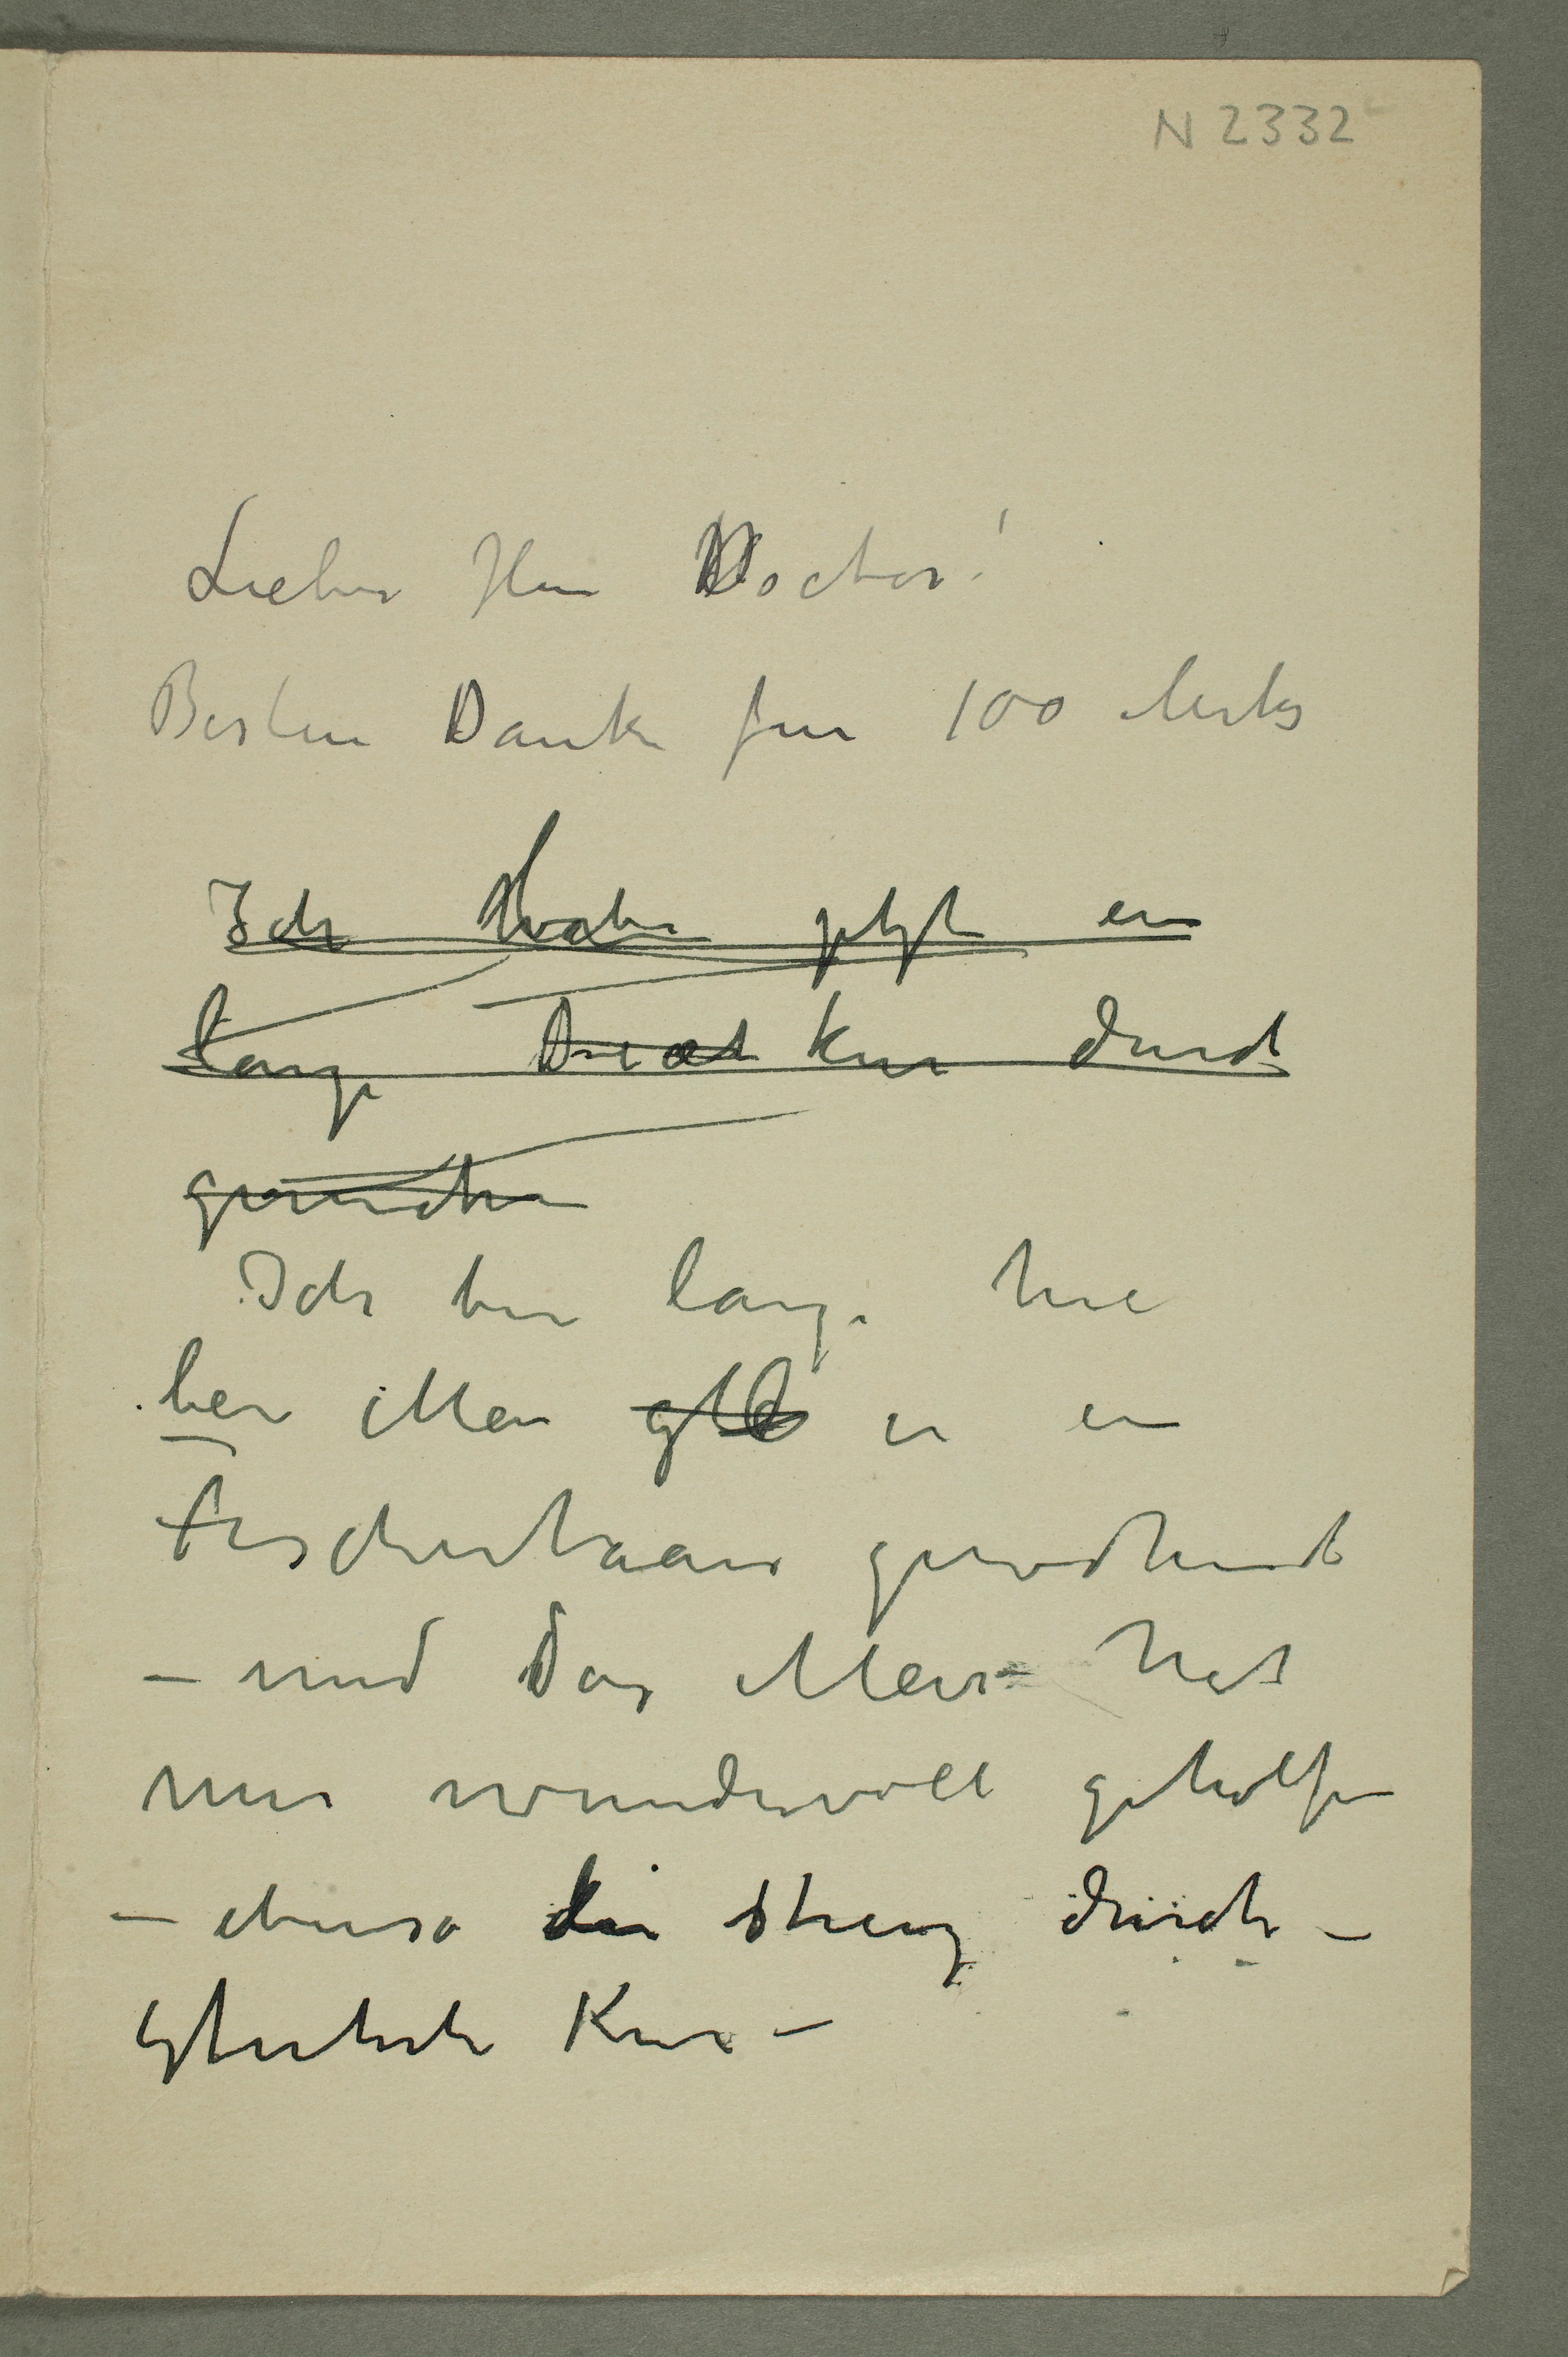 N 2332
Lieber Herr Doctor!
Besten Dank für 100 Mark
Ich habe jetzt ein
lange Diæt kur durch
gemacht
Ich bin lange hie
bei Meer in ein
Fischerhaus gewohnt
– und das Meer hat
mir wundervoll geholfen
– ebenso die streng durch–
geführte Kur –